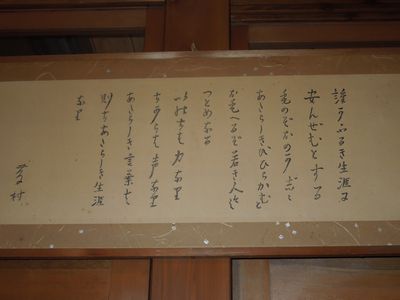 誰かふるき生涯に
安んぜむとする
ものぞおのがじし
あたらしきをひらかむと
おもへるぞ若き人々の
つとめなる
いのちは力なり
ちからは声なり
あたらしき言葉は
則ちあたらしき生涯
なり
藤村